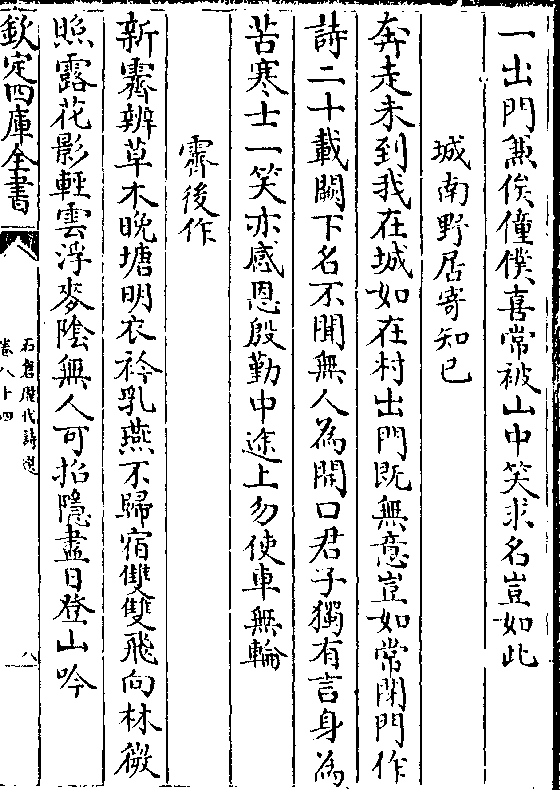 一出門兼俟僮僕喜常被山中笑求名豈如此
城南野居寄知己
奔走未到我在城如在村出門既無意豈如常閉門作
詩二十載闕下名不聞無人為開口君子獨有言身為
苦寒士一笑亦感恩殷勤中途上勿使車無輪
霽後作
新霽辨草木晚塘明衣衿乳燕不歸宿雙雙飛向林微
照露花影輕雲浮麥陰無人可招隱盡日登山吟
欽定四庫全書
石倉歷代詩選
卷八十四
八